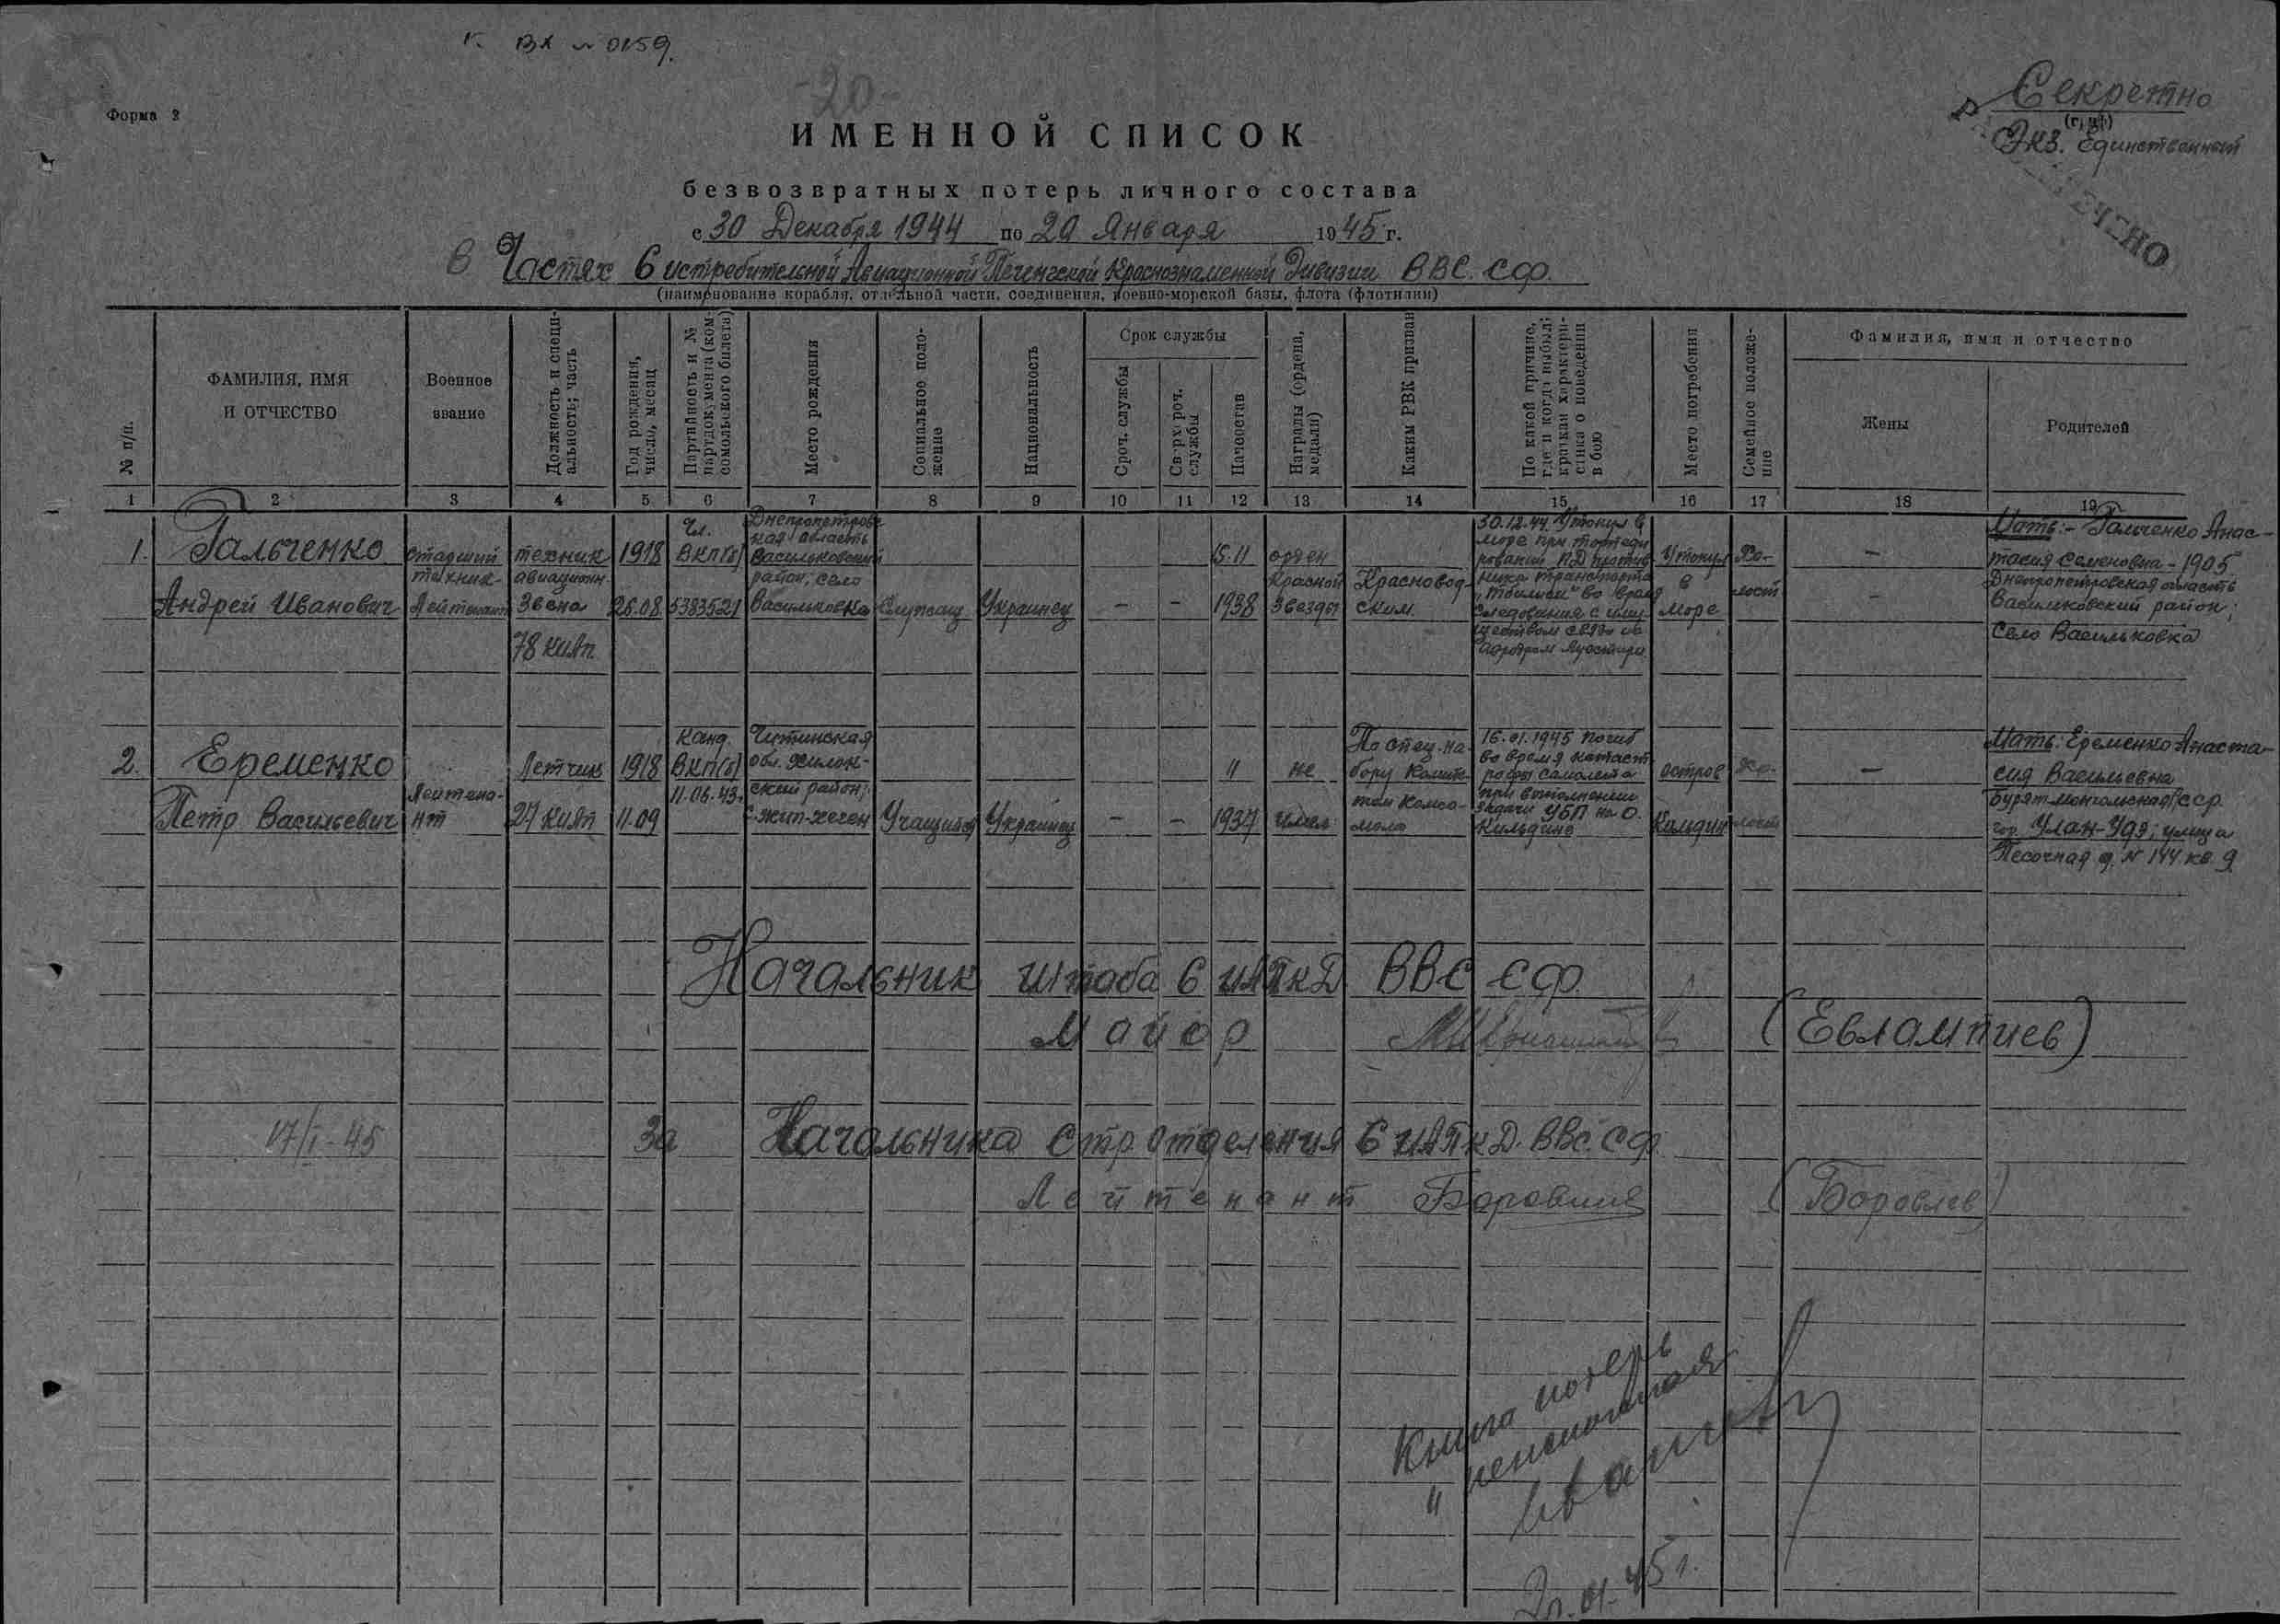 Вх № 0159.
-20-
Форма 2
Секретно
(гриф)
Экз. Единственный
РАССЕКРЕЧЕНО
ИМЕННОЙ СПИСОК
безвозвратных потерь личного состава
с 30 Декабря 1944 по 20 Января 1945 г.
в Частях 6 истребительной Авиационной Печенгской Краснознаменной Дивизии ВВС. СФ.
(наименование корабля, отдельной части, соединения, военно-морской базы, флота (флотилии)
№ п/п.
ФАМИЛИЯ, ИМЯ
И ОТЧЕСТВО
Военное
звание
Должность и специ-
альность; часть
Год рождения,
число, месяц
Партийность и №
партдокумента (ком-
сомольского билета)
Место рождения
Социальное поло-
жение
Национальность
Срок службы
Сроч. службы
Сверхсроч.
службы
Начсостав
Награды (ордена,
медали)
Каким РВК призван
По какой причине,
где и когда выбыл;
краткая характери-
стика о поведении
в бою
Место погребения
Семейное положе-
ние
Фамилия, имя и отчество
Жены
Родителей
1 2 3 4 5 6 7 8 9 10 11 12 13 14 15 16 17 18 19
1.
Гальченко
Андрей Иванович
старший
техник-
лейтенант
техник
авиационн.
звена
78 киап
1918
26.08
Чл.
ВКП(б)
5383521
Днепропетровс
кая область
Васильковский
район, село
Васильковка
Служащ
Украинец
-
-
15.11
1938
орден
Красной
Звезды
Красновод-
ским.
30.12.44. Утонул в
море при торпеди
ровании П.Д против
ника транспорта
"Тбилиси" во время
следования с иму-
ществом связи на
аэродром Луостари
Утонул
в
море
Хо-
лост
-
-
Мать:- Гальченко Анас-
тасия Семеновна - 1905
Днепропетровская область
Васильковский район;
село Васильковка
2.
Еременко
Петр Васильевич
Лейтена-
нт
Летчик
27 киап
1918
11.09
канд.
ВКП(б)
11.06.43г
Читинская
обл. Хилок-
ский район;
с. Жип-хеген
Учащийся
Украинец
-
-
11
1937
не
имел
По спец. на-
бору Комите-
том Комсо-
мола
16.01.1945 погиб
во время катаст
рофы самолета
при выполнении
задачи УБП на О.
Кильдине
остров
Кильдин
Хо-
лост
-
Мать: Еременко Анаста-
сия Васильевна
Бурят Монгольская АССР.
гор. Улан-Удэ; улица
Песочная д. № 144 кв. 9
Начальник штаба 6 ИАПкД ВВС СФ.
Майор
(Евлампиев)
17/I-45
За Начальника стр. отделения 6 ИАПкД. ВВС. СФ.
Лейтенант
(Боровлев)
Книга потерь